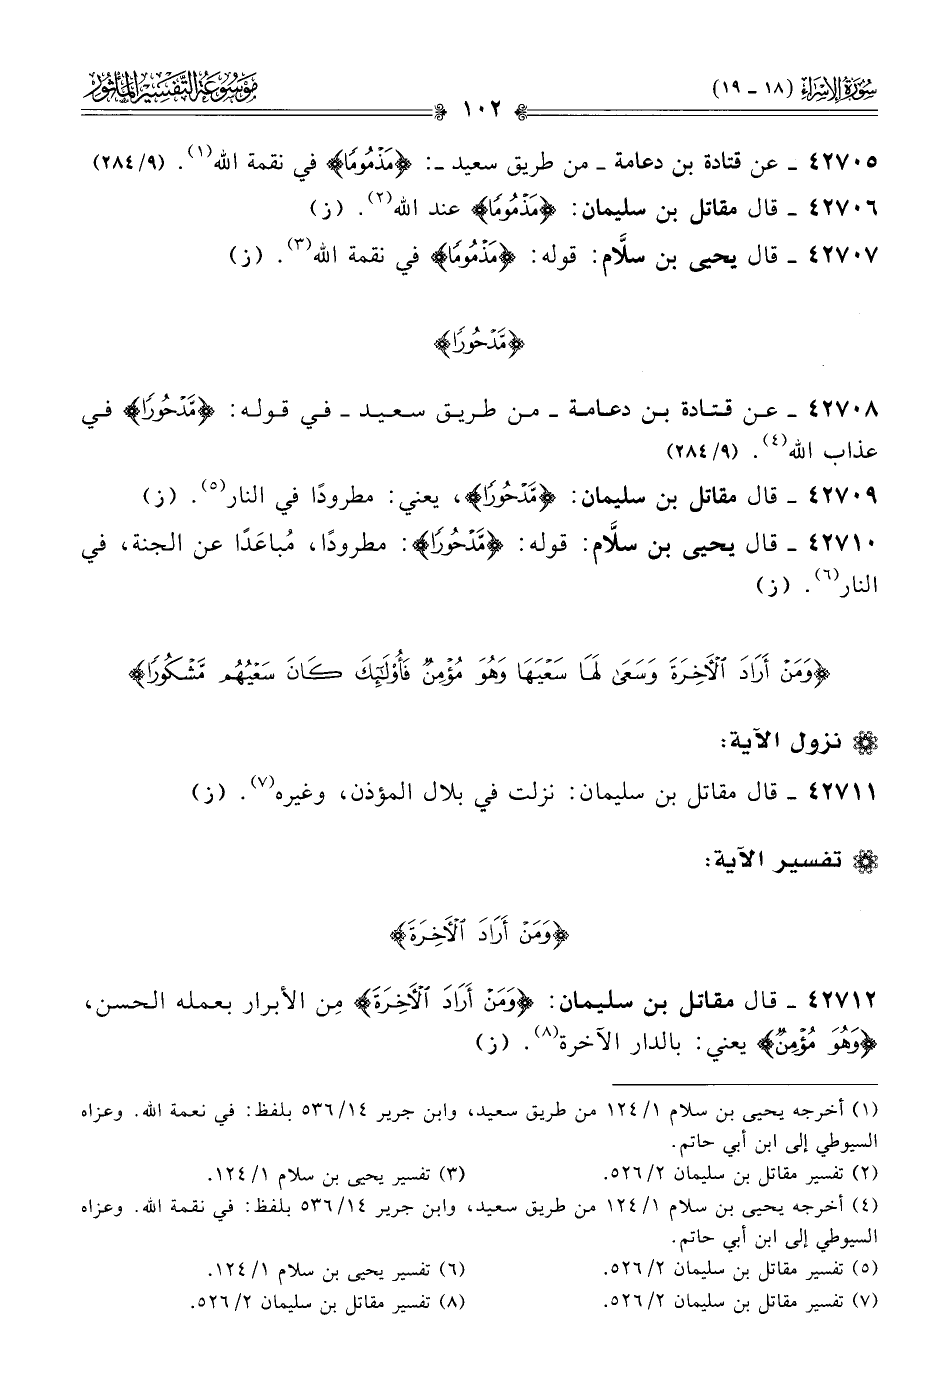 سُورَةُ الإِسْرَاءِ (١٨ - ١٩)
١٠٢
مَوْسُوعَةُ التَّفْسِيرِ المَأْثُور
٤٢٧٠٥ ـ عن قتادة بن دعامة ـ من طريق سعيد ـ: ﴿مَذْمُومًا﴾ في نقمة الله(١). (٢٨٤/٩)
٤٢٧٠٦ ـ قال مقاتل بن سليمان: ﴿مَذْمُومًا﴾ عند الله(٢). (ز)
٤٢٧٠٧ ـ قال يحيى بن سلَّام: قوله: ﴿مَذْمُومًا﴾ في نقمة الله(٣). (ز)
﴿مَّدْحُورًا﴾
٤٢٧٠٨ ـ عن قتادة بن دعامة ـ من طريق سعيد ـ في قوله: ﴿مَّدْحُورًا﴾ في
عذاب الله(٤). (٢٨٤/٩)
٤٢٧٠٩ ـ قال مقاتل بن سليمان: ﴿مَّدْحُورًا﴾، يعني: مطرودًا في النار(٥). (ز)
٤٢٧١٠ ـ قال يحيى بن سلَّام: قوله: ﴿مَّدْحُورًا﴾: مطرودًا، مُباعَدًا عن الجنة، في
النار(٦). (ز)
﴿وَمَنْ أَرَادَ ٱلْأَخِرَةَ وَسَعَىٰ لَهَا سَعْيَهَا وَهُوَ مُؤْمِنٌ فَأُوْلَٰٓئِكَ كَانَ سَعْيُهُم مَّشْكُورًا﴾
نزول الآية:
٤٢٧١١ ـ قال مقاتل بن سليمان: نزلت في بلال المؤذن، وغيره(٧). (ز)
تفسير الآية:
﴿وَمَنْ أَرَادَ ٱلْأَخِرَةَ﴾
٤٢٧١٢ ـ قال مقاتل بن سليمان: ﴿وَمَنْ أَرَادَ ٱلْأَخِرَةَ﴾ مِن الأبرار بعمله الحسن،
﴿وَهُوَ مُؤْمِنٌ﴾ يعني: بالدار الآخرة(٨). (ز)
(١) أخرجه يحيى بن سلام ١/ ١٢٤ من طريق سعيد، وابن جرير ١٤/ ٥٣٦ بلفظ: في نعمة الله. وعزاه
السيوطي إلى ابن أبي حاتم.
(٢) تفسير مقاتل بن سليمان ٢/ ٥٢٦. (٣) تفسير يحيى بن سلام ١/ ١٢٤.
(٤) أخرجه يحيى بن سلام ١/ ١٢٤ من طريق سعيد، وابن جرير ١٤/ ٥٣٦ بلفظ: في نقمة الله. وعزاه
السيوطي إلى ابن أبي حاتم.
(٥) تفسير مقاتل بن سليمان ٢/ ٥٢٦. (٦) تفسير يحيى بن سلام ١/ ١٢٤.
(٧) تفسير مقاتل بن سليمان ٢/ ٥٢٦. (٨) تفسير مقاتل بن سليمان ٢/ ٥٢٦.